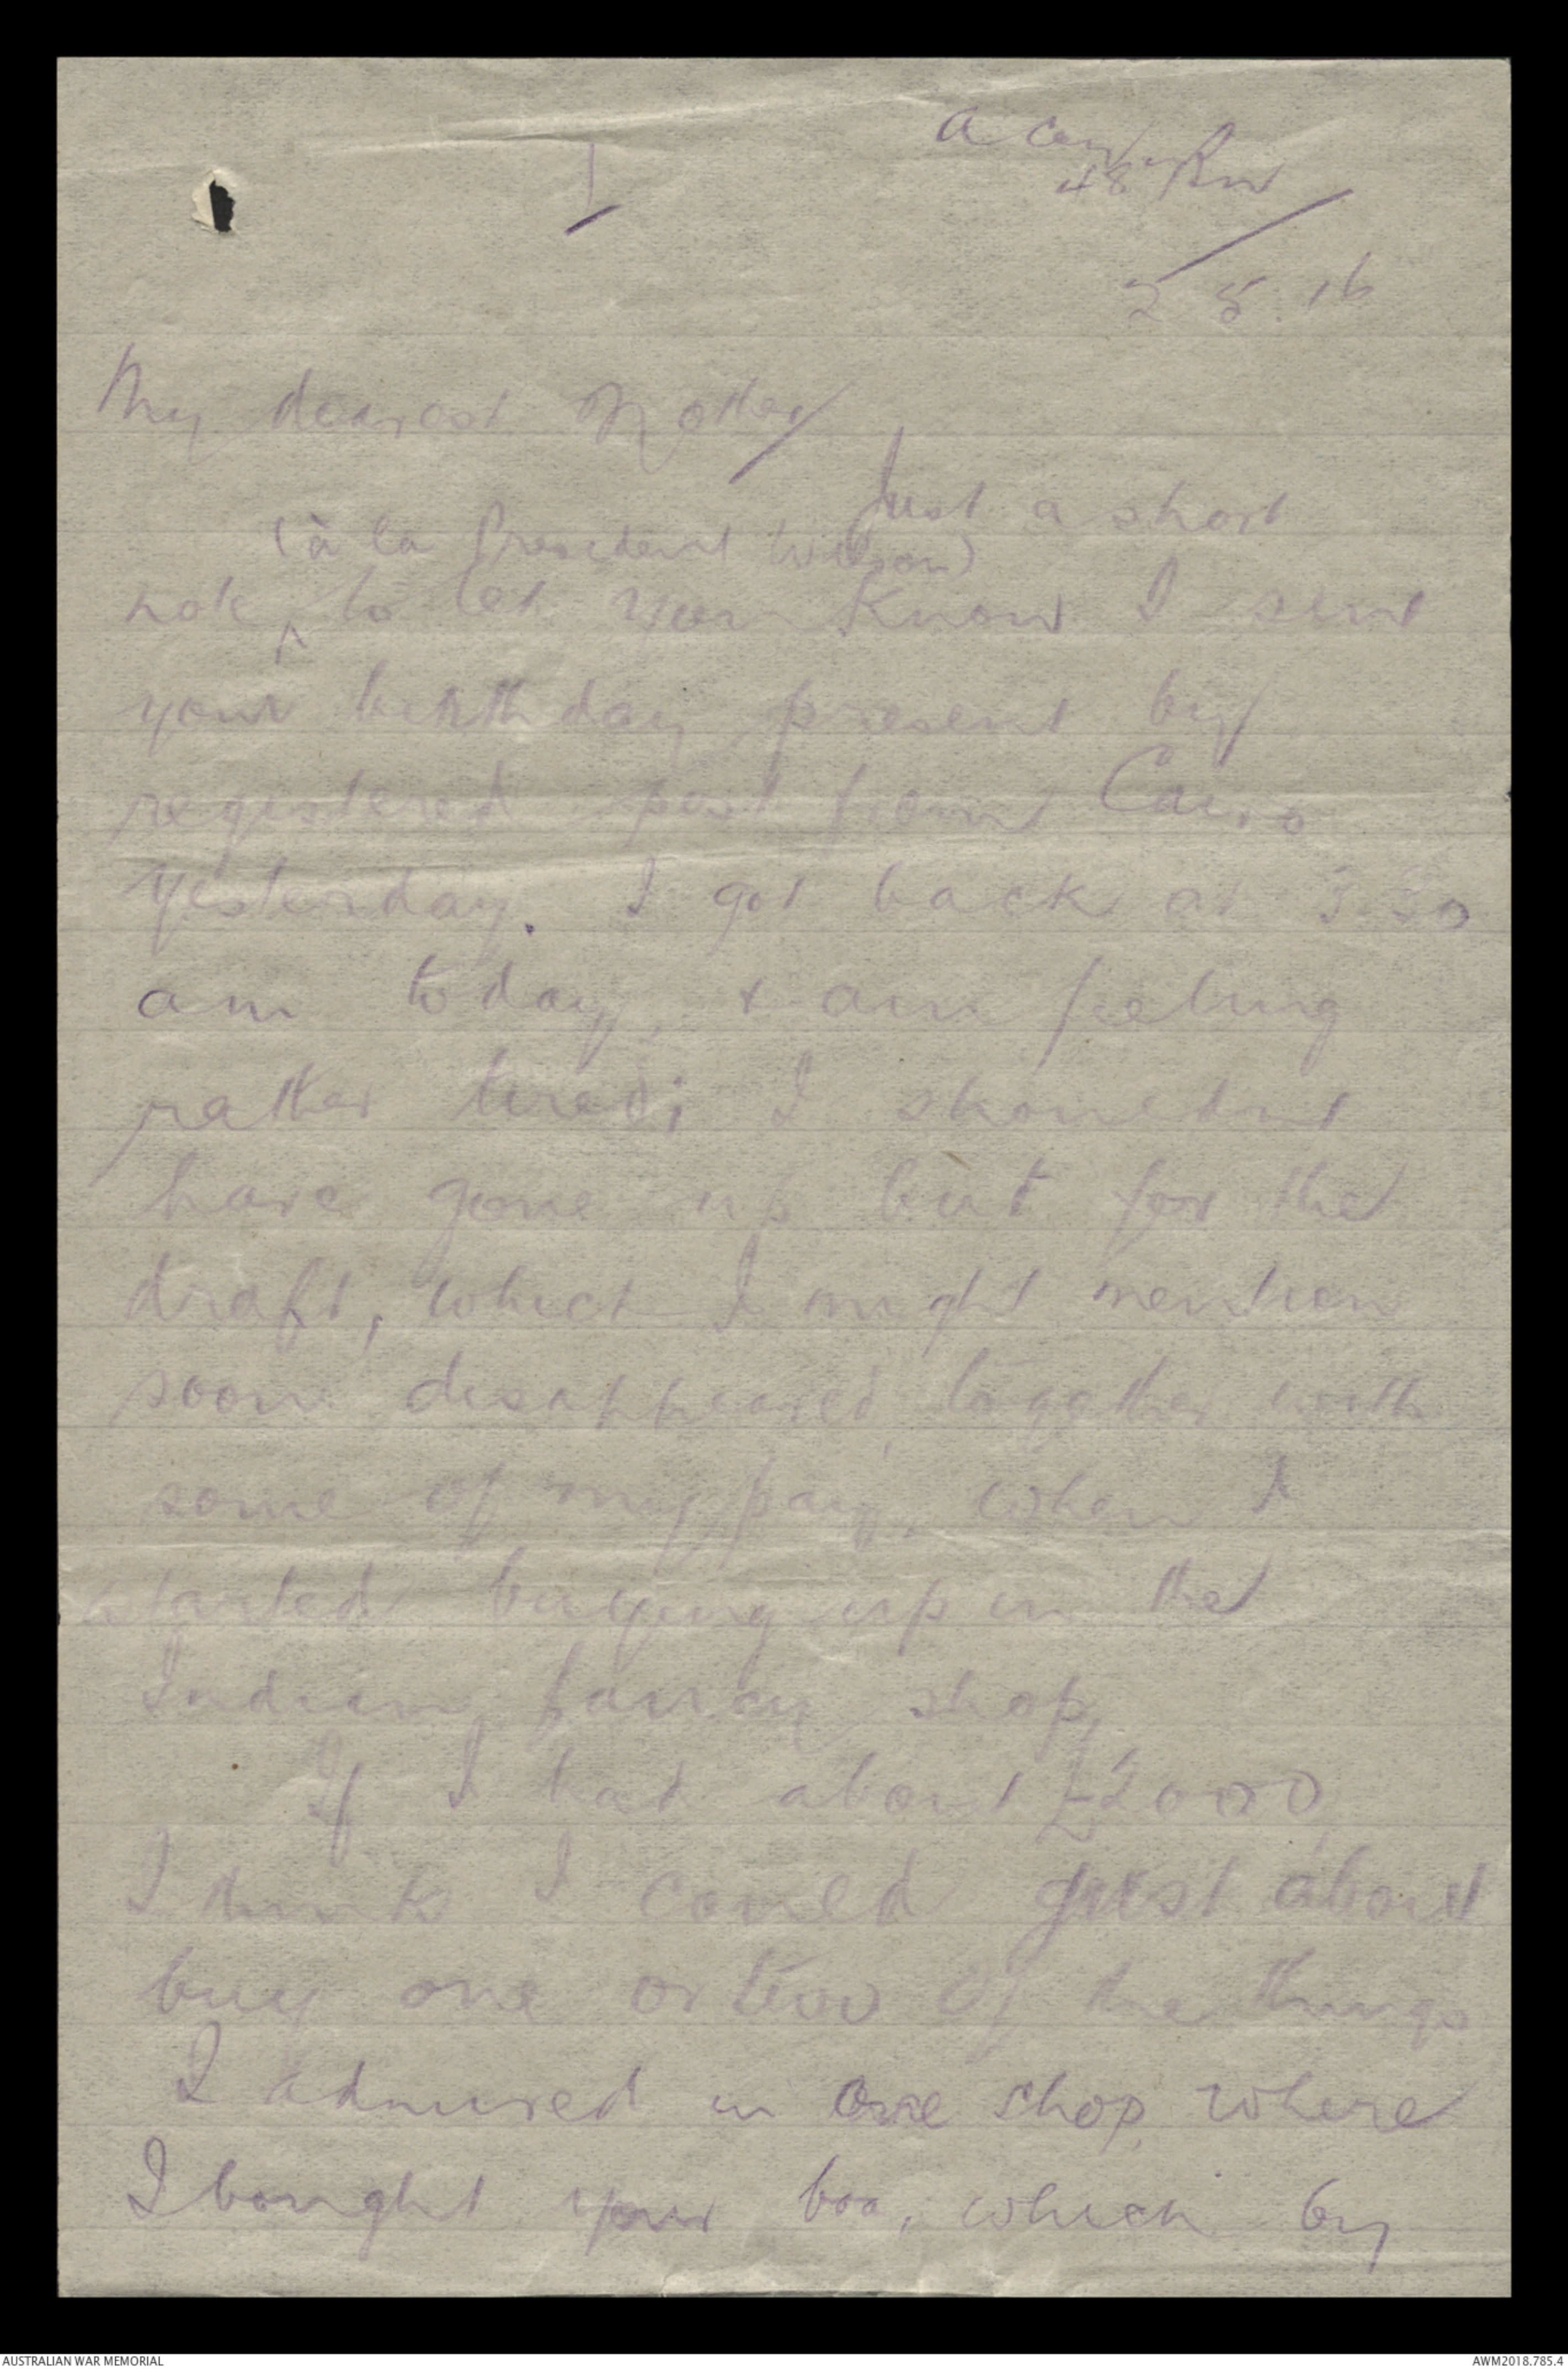 1
A Coy
48th Bn
2 5 16
My dearest Mother
Just a short
(à la President Wilson)
note, to let you know I sent
your birthday present by
registered post from Cairo
yesterday. I got back at 3.30
am today, & am feeling
rather tired; I shouldnt
have gone up but for the
draft, which I might mention
soon disappeared, together with
some of my pay, when I
started buying up in the
Indian fancy shop.
If I had about £2000,
I think I could just about
buy one or two of the things
I admired in one shop, where
I bought your boa, which by
AUSTRALIAN WAR MEMORIAL
AWM2018.785.4